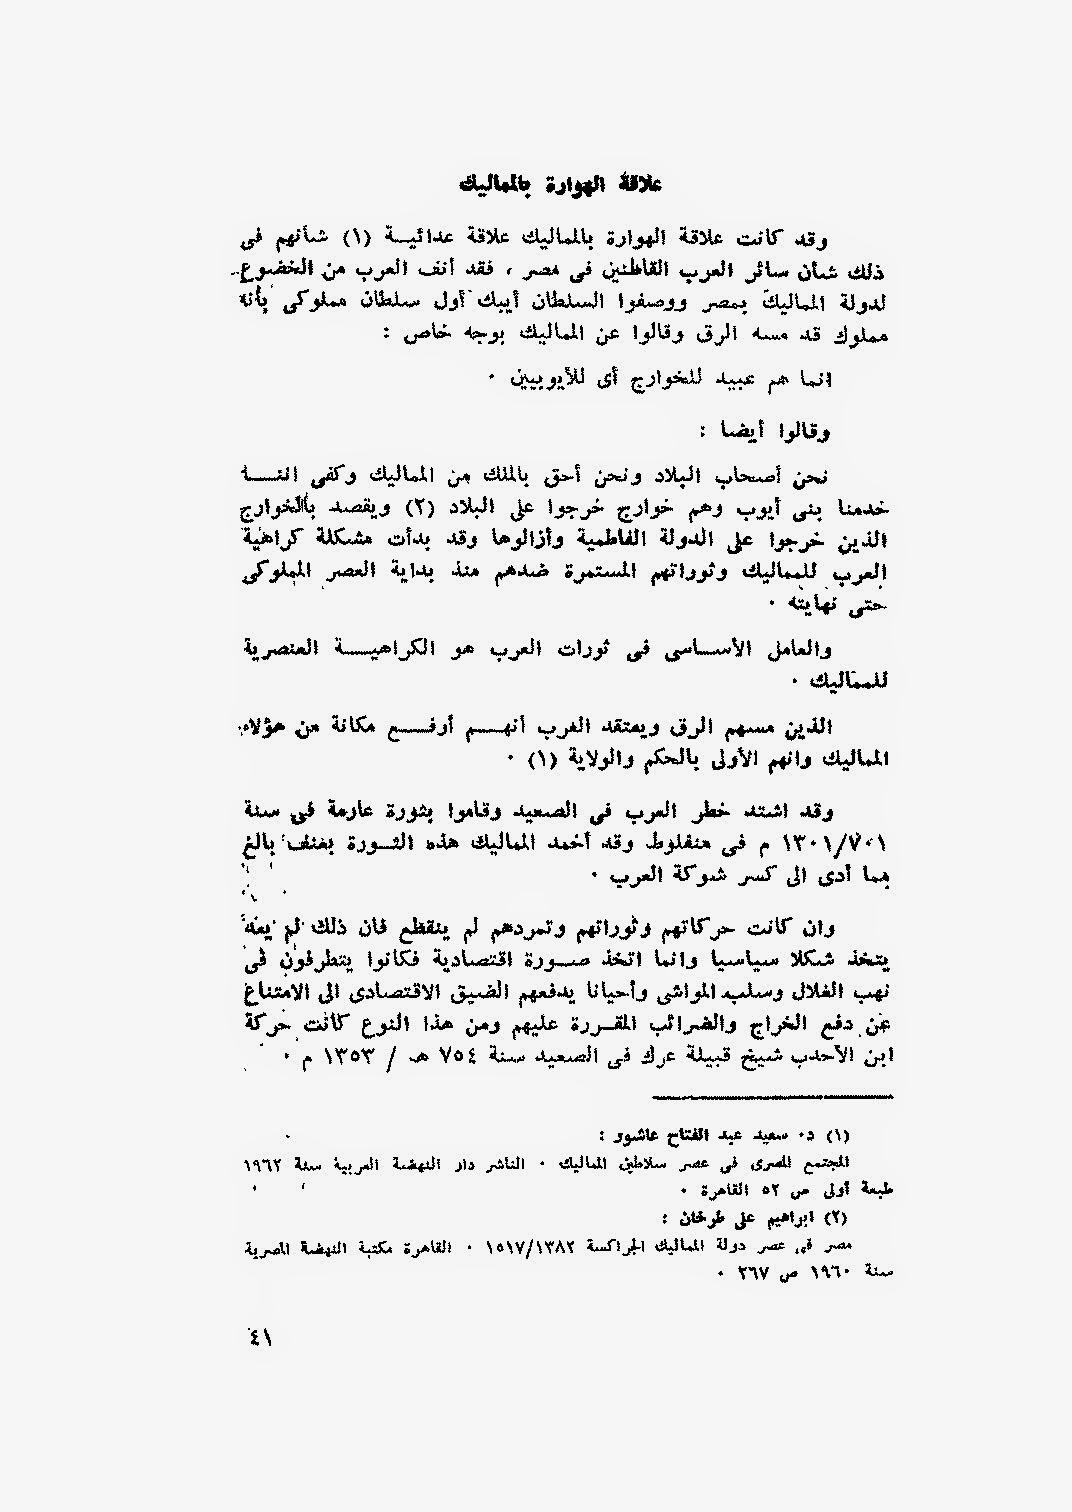 علاقة الهوارة بالمماليك
وقد كانت علاقة الهوارة بالمماليك علاقة عدائيـة (١) شأنهم فى
ذلك شأن سائر العرب القاطنين فى مصر ، فقد أنف العرب من الخضوع
لدولة المماليك بمصر ووصفوا السلطان أيبك أول سلطان مملوكى بأنه
مملوك قد مسه الرق وقالوا عن المماليك بوجه خاص :
انما هم عبيد للخوارج أى للأيوبيين ٠
وقالوا أيضا :
نحن أصحاب البلاد ونحن أحق بالملك من المماليك وكفى اننــا
خدمنا بنى أيوب وهم خوارج خرجوا على البلاد (٢) ويقصد بالخوارج
الذين خرجوا على الدولة الفاطمية وأزالوها وقد بدأت مشكلة كراهية
العرب للمماليك وثوراتهم المستمرة ضدهم منذ بداية العصر المملوكى
حتى نهايته ٠
والعامل الأسـاسى فى ثورات العرب هو الكراهيـة العنصرية
للمماليك ٠
الذين مسهم الرق ويعتقد العرب أنهـم أرفـع مكانة من هؤلاء
المماليك وانهم الأولى بالحكم والولاية (١) ٠
وقد اشتد خطر العرب فى الصعيد وقاموا بثورة عارمة فى سنة
١٣٠١/٧٠١ م فى منفلوط وقد أخمد المماليك هذه الثـورة بعنف بالغ
مما أدى الى كسر شوكة العرب ٠
وان كانت حركاتهم وثوراتهم وتمردهم لم ينقطع فان ذلك لم يعد
يتخذ شكلا سياسيا وانما اتخذ صـورة اقتصادية فكانوا يتطرفون فى
نهب الغلال وسلب المواشى وأحيانا يدفعهم الضيق الاقتصادى الى الامتناع
عن دفع الخراج والضرائب المقـررة عليهم ومن هذا النوع كانت حركة
ابن الأحدب شيخ قبيلة عرك فى الصعيد سنة ٧٥٤ هـ / ١٣٥٣ م ٠
(١) د٠ سعيد عبد الفتاح عاشور :
المجتمع المصرى فى عصر سلاطين المماليك ٠ الناشر دار النهضة العربية سنة ١٩٦٢
طبعة أولى ص ٥٢ القاهرة ٠
(٢) ابراهيم على طرخان :
مصر فى عصر دولة المماليك الجراكسة ١٥١٧/١٣٨٢ ٠ القاهرة مكتبة النهضة المصرية
سنة ١٩٦٠ ص ٢٦٧ ٠
٤١